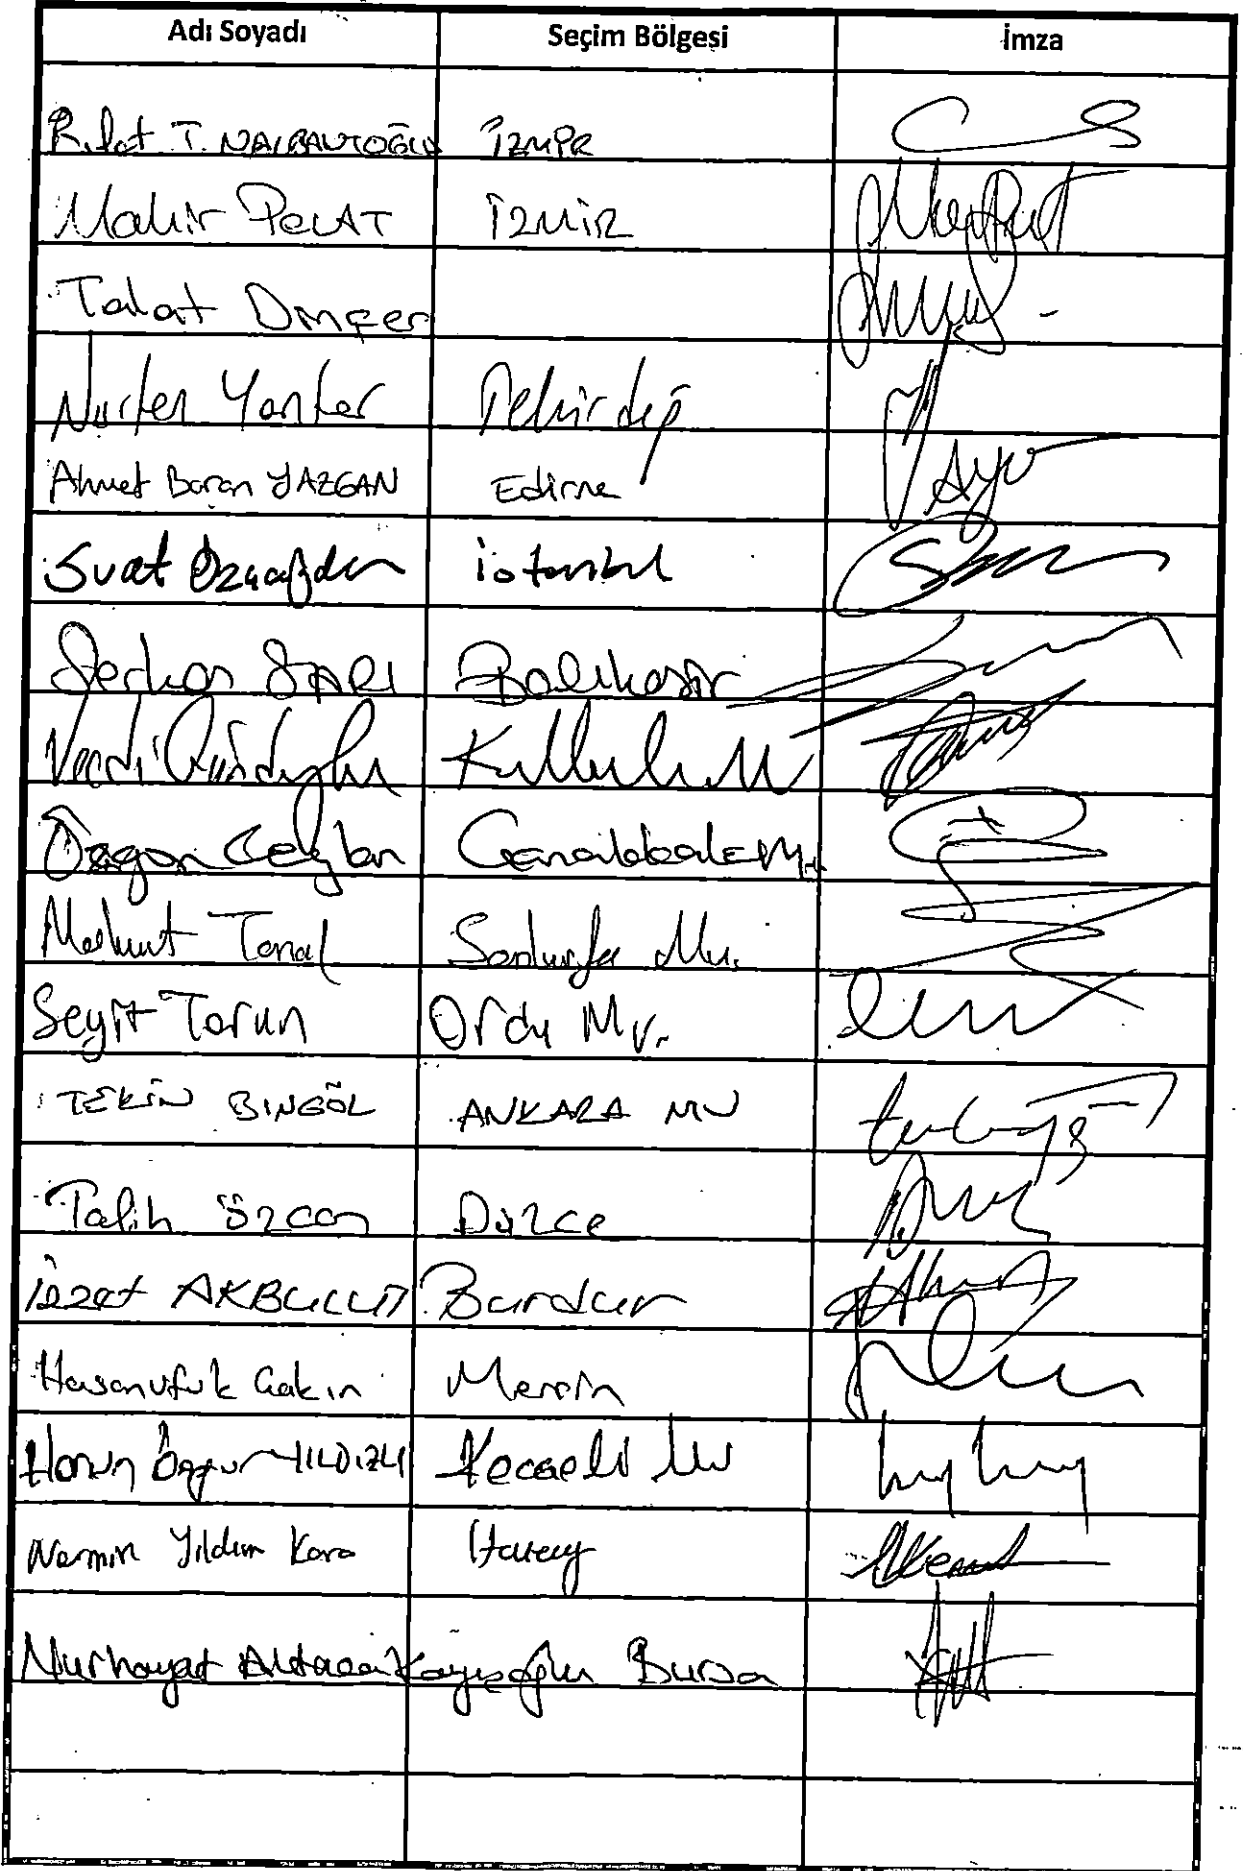 Adı Soyadı Seçim Bölgesi İmza
Rıfat T. NALBANTOĞLU İZMİR
Mahir POLAT İZMİR
Talat Dinçer
Nurten Yontar Tekirdağ
Ahmet Baran YAZGAN Edirne
Suat Özçağdaş İstanbul
Serkan SARI Balıkesir
Vecdi Gündoğdu Kırklareli M
Özgür Ceylan Çanakkale Mv.
Mahmut Tanal Şanlıurfa Mv.
Seyit Torun Ordu Mv.
TEKİN BİNGÖL ANKARA MV
Talih Özcan Düzce
İzzet AKBULUT Burdur
Hasan Ufuk Çakır Mersin
Harun Özgür YILDIZLI Kocaeli Mv
Nermin Yıldırım Kara Hatay
Nurhayat Altaca Kayışoğlu Bursa